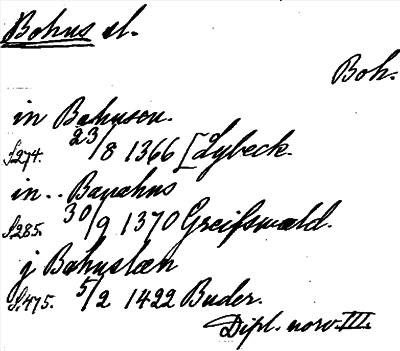 Bohus sl.
Boh.
in Bahusen.
S.274. 23/8 1366 [Lybeck.
in .. Bapahus
S.285. 30/9 1370 Greifswald.
j Bahuslæn
S.475. 5/2 1422 Buder.
Dipl. norv. III.